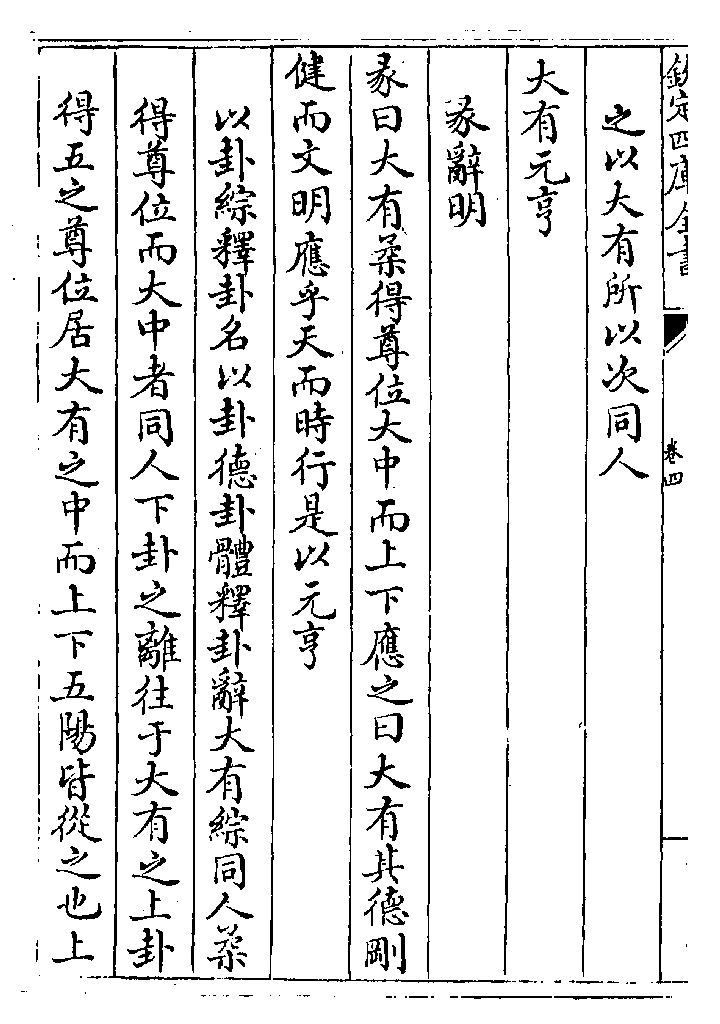 欽定四庫全書
卷四
之以大有所以次同人
大有元亨
彖辭明
彖曰大有柔得尊位大中而上下應之曰大有其德剛
健而文明應乎天而時行是以元亨
以卦綜釋卦名以卦德卦體釋卦辭大有綜同人柔
得尊位而大中者同人下卦之離往于大有之上卦
得五之尊位居大有之中而上下五陽皆從之也上